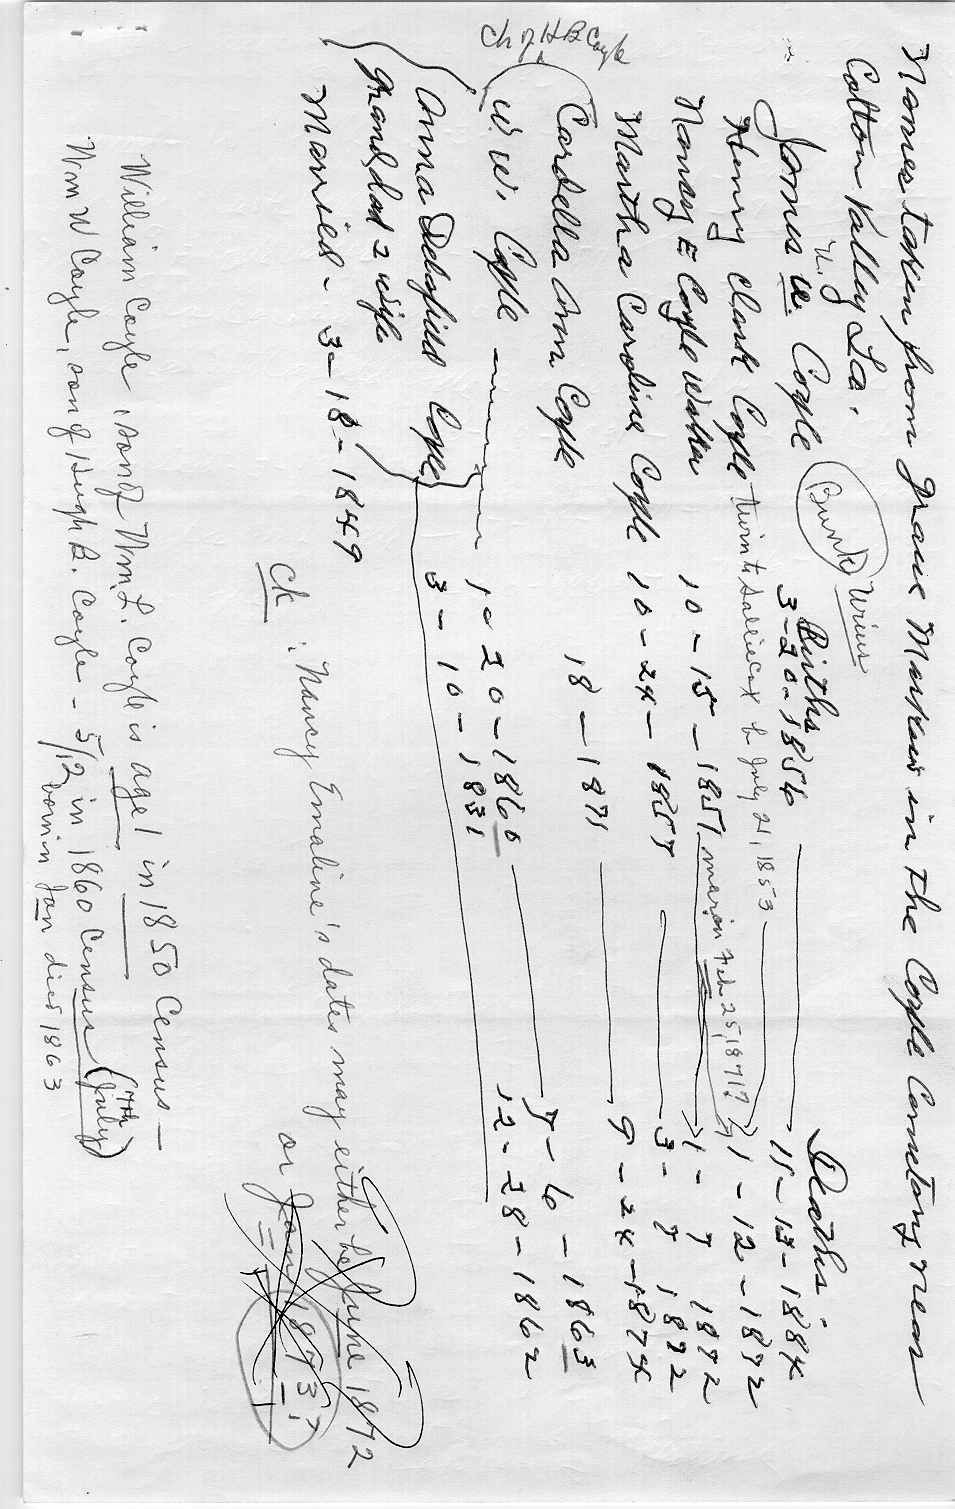 Names taken from grave Markers in the Coyle Cemetary near
Cotton Valley La.
Births Deaths
James W. Coyle 3-20-1856 11-13-1884
H.
Bunk
Henry Clark Coyle twin to b July 21, 1853 1-12-1872
Nancy E Coyle Walker 10-15-1851 1-7 1872
Feb 25, 1871?
Martha Caroline Coyle 10-24-1857 3-7 1872
Cordella Ann Coyle 18-1871 9-24-1874
Ch of H B Coyle
W. W. Coyle 1-20-1860 7-6-1863
Anna Delafield Coyle 3-10-1831 12-28-1862
Grand dad 2 wife
Married - 3-18-1849
Ck: Nancy Emaline's dates may either be June 1872
or Jan 1873?
William Coyle, son of Wm. L. Coyle is age 1 in 1850 Census -
Wm W Coyle, son of Hugh B. Coyle - 5/12 in 1860 Census (7th July)
born in Jan died 1863